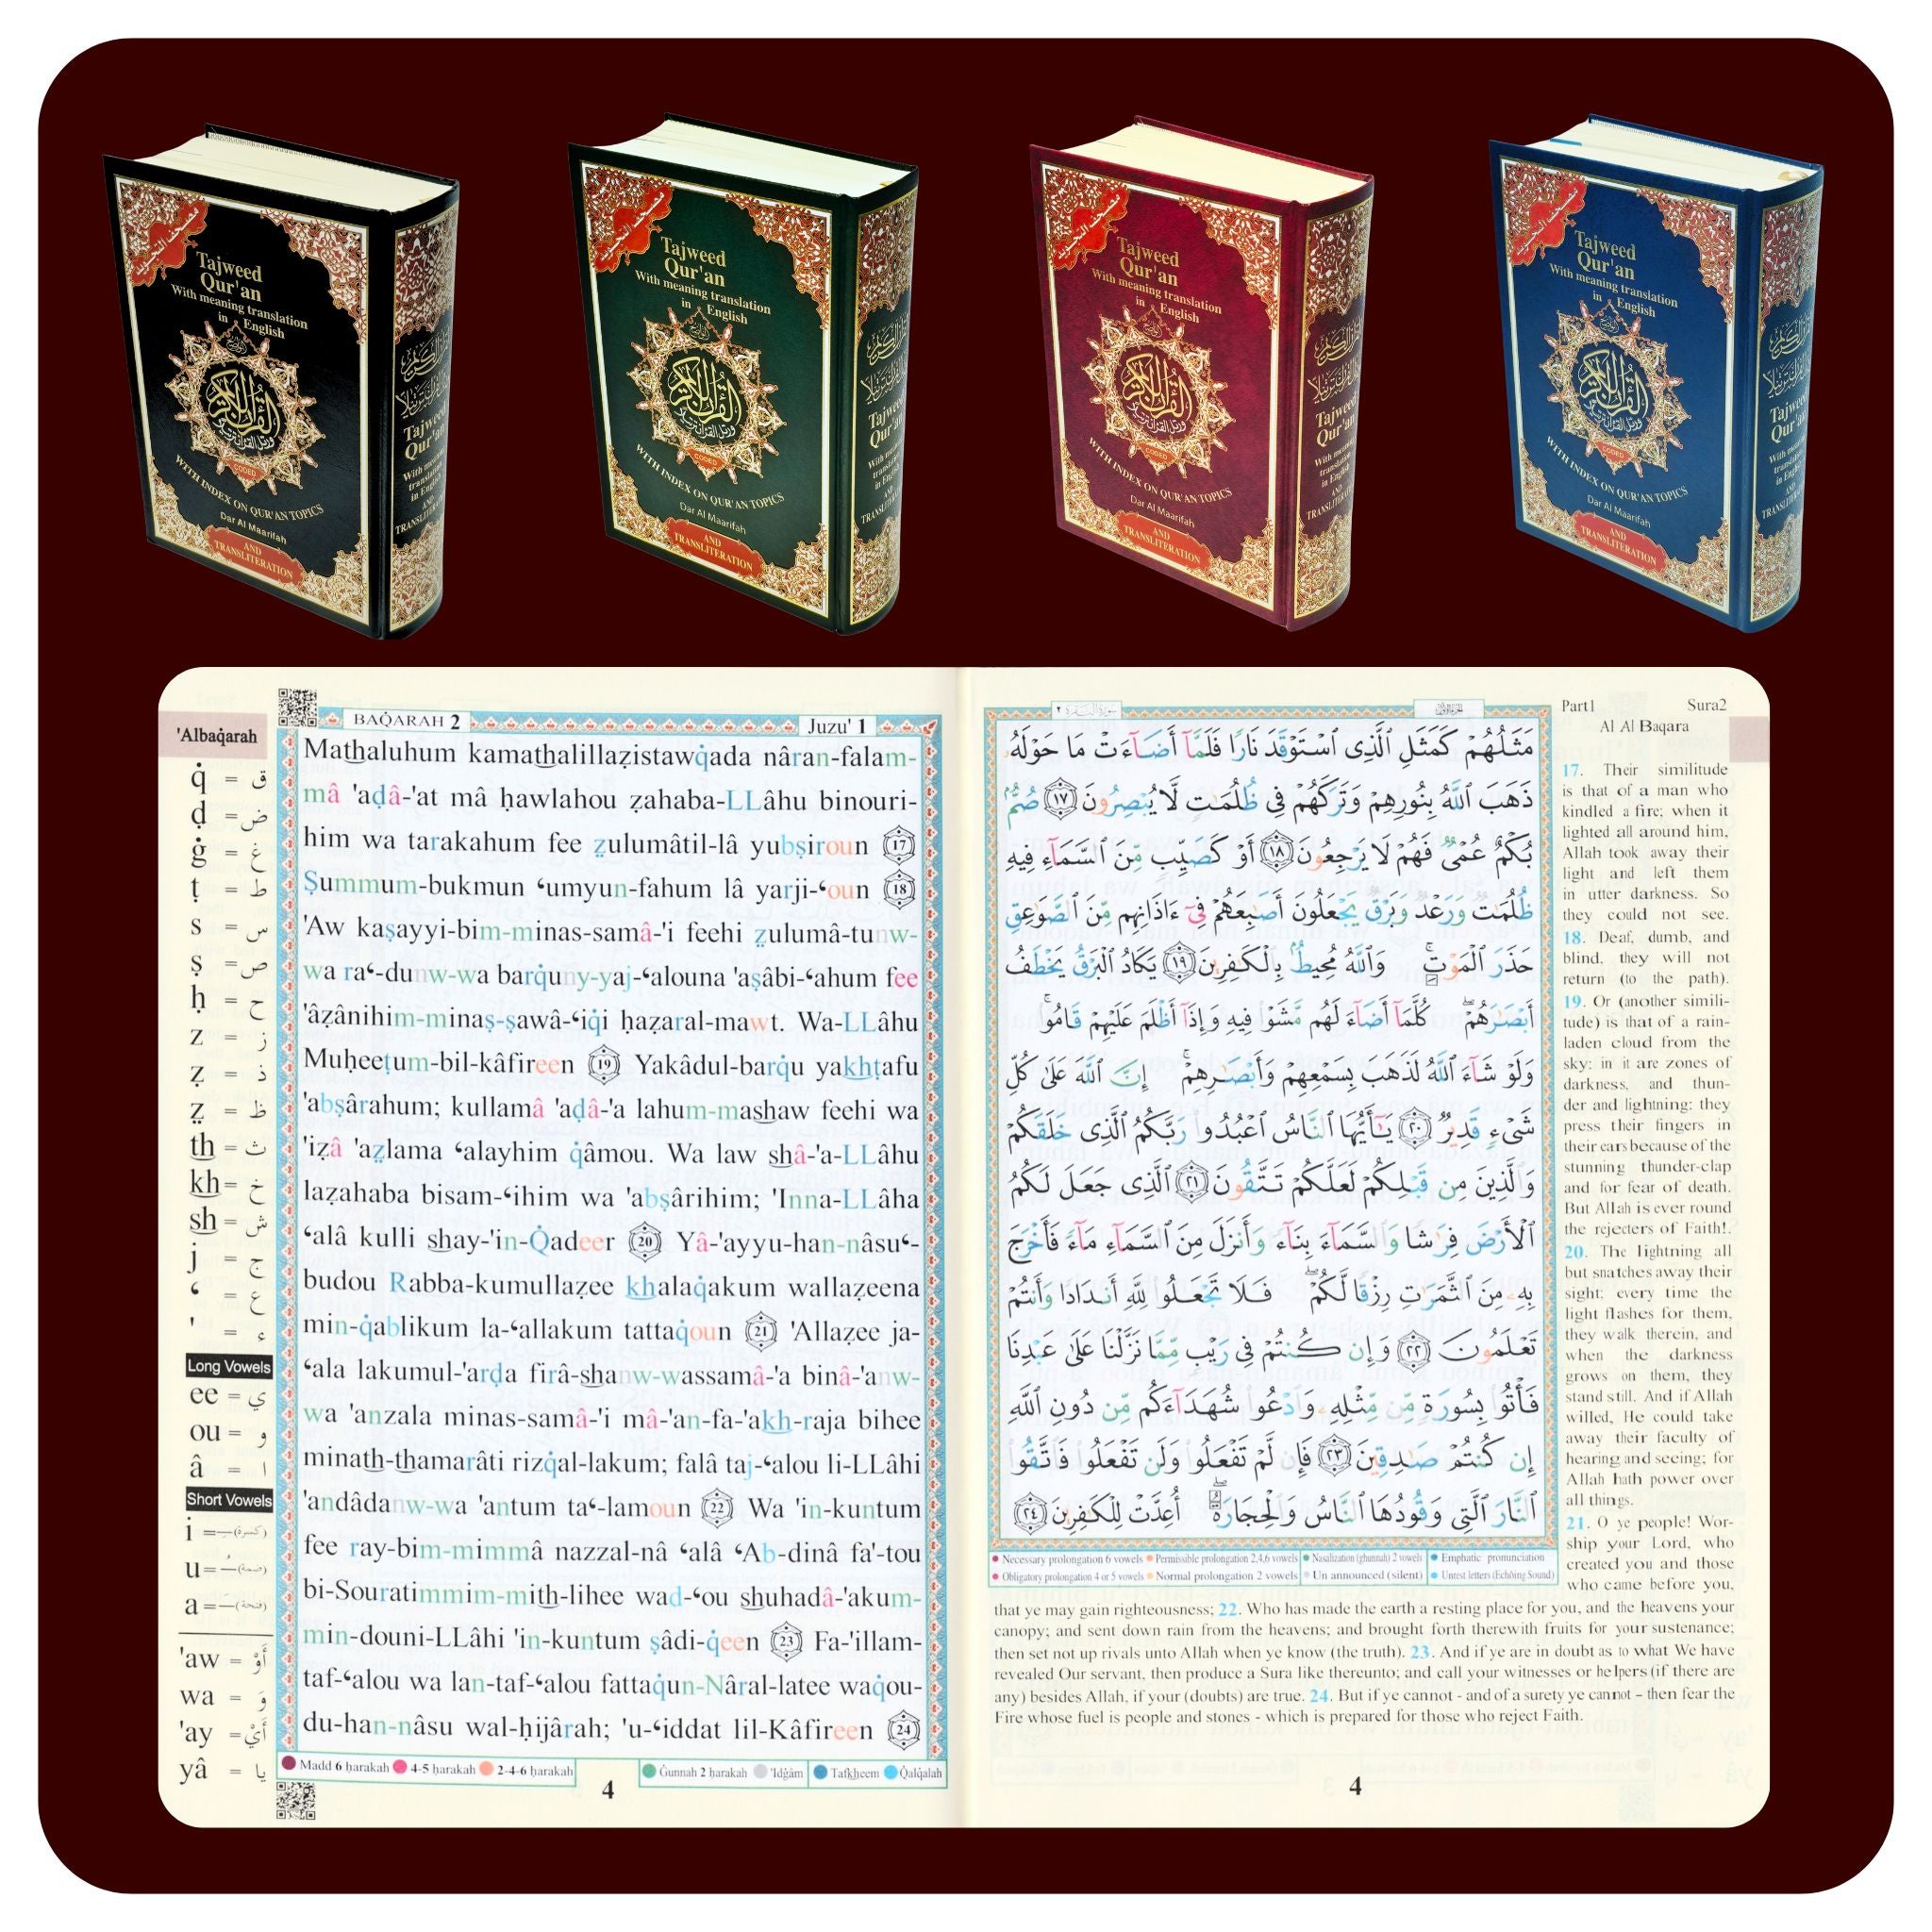 Tajweed
Qur'an
With meaning translation
in English
القرآن الكريم
ورتل القرآن ترتيلا
CODED
WITH INDEX ON QUR'AN TOPICS
Dar Al Maarifah
AND
TRANSLITERATION
Tajweed
Qur'an
With meaning translation
in English
القرآن الكريم
ورتل القرآن ترتيلا
CODED
WITH INDEX ON QUR'AN TOPICS
Dar Al Maarifah
AND
TRANSLITERATION
Tajweed
Qur'an
With meaning translation
in English
القرآن الكريم
ورتل القرآن ترتيلا
CODED
WITH INDEX ON QUR'AN TOPICS
Dar Al Maarifah
AND
TRANSLITERATION
Tajweed
Qur'an
With meaning translation
in English
القرآن الكريم
ورتل القرآن ترتيلا
CODED
WITH INDEX ON QUR'AN TOPICS
Dar Al Maarifah
AND
TRANSLITERATION
'Albaq̇arah
q̇ = ق
ḍ = ض
ġ = غ
ṭ = ط
s = س
ṣ = ص
ḥ = ح
z = ز
ẓ = ذ
ẓ̤ = ظ
th = ث
kh = خ
sh = ش
j = ج
‘ = ع
' = ء
Long Vowels
ee = ي
ou = و
â = ا
Short Vowels
i = ــِـ (كسرة)
u = ــُـ (ضمة)
a = ــَـ (فتحة)
'aw = أَوْ
wa = وَ
'ay = أَيْ
yâ = يا
BAQ̇ARAH 2
Juzu' 1
Mathaluhum kamathalillaẓistawq̇ada nâran-falam-
mâ 'aḍâ-'at mâ ḥawlahou ẓahaba-LLâhu binouri-
him wa tarakahum fee ẓ̤ulumâtil-lâ yubṣiroun 17
Ṣummum-bukmun ‘umyun-fahum lâ yarji-‘oun 18
'Aw kaṣayyi-bim-minas-samâ-'i feehi ẓ̤ulumâ-tunw-
wa ra‘-dunw-wa barq̇uny-yaj-‘alouna 'aṣâbi-‘ahum fee
'âẓânihim-minaṣ-ṣawâ-‘iq̇i ḥaẓaral-mawt. Wa-LLâhu
Muḥeeṭum-bil-kâfireen 19 Yakâdul-barq̇u yakhṭafu
'abṣârahum; kullamâ 'aḍâ-'a lahum-mashaw feehi wa
'iẓâ 'aẓ̤lama ‘alayhim q̇âmou. Wa law shâ-'a-LLâhu
laẓahaba bisam-‘ihim wa 'abṣârihim; 'Inna-LLâha
‘alâ kulli shay-'in-Q̇adeer 20 Yâ-'ayyu-han-nâsu‘-
budou Rabba-kumullaẓee khalaq̇akum wallaẓeena
min-q̇ablikum la-‘allakum tattaq̇oun 21 'Allaẓee ja-
‘ala lakumul-'arḍa firâ-shanw-wassamâ-'a binâ-'anw-
wa 'anzala minas-samâ-'i mâ-'an-fa-'akh-raja bihee
minath-thamarâti rizq̇al-lakum; falâ taj-‘alou li-LLâhi
'andâdanw-wa 'antum ta‘-lamoun 22 Wa 'in-kuntum
fee ray-bim-mimmâ nazzal-nâ ‘alâ ‘Ab-dinâ fa'-tou
bi-Souratimmim-mith-lihee wad-‘ou shuhadâ-'akum-
min-douni-LLâhi 'in-kuntum ṣâdi-q̇een 23 Fa-'illam-
taf-‘alou wa lan-taf-‘alou fattaq̇un-Nâral-latee waq̇ou-
du-han-nâsu wal-ḥijârah; 'u-‘iddat lil-Kâfireen 24
Madd 6 ḥarakah 4-5 ḥarakah 2-4-6 ḥarakah
Ġunnah 2 ḥarakah 'Idġâm Tafkheem Q̇alq̇alah
4
سورة البقرة ٢
الجزء الأول
مَثَلُهُمْ كَمَثَلِ ٱلَّذِى ٱسْتَوْقَدَ نَارًا فَلَمَّآ أَضَآءَتْ مَا حَوْلَهُۥ
ذَهَبَ ٱللَّهُ بِنُورِهِمْ وَتَرَكَهُمْ فِى ظُلُمَٰتٍ لَّا يُبْصِرُونَ ١٧ صُمٌّۢ
بُكْمٌ عُمْىٌ فَهُمْ لَا يَرْجِعُونَ ١٨ أَوْ كَصَيِّبٍ مِّنَ ٱلسَّمَآءِ فِيهِ
ظُلُمَٰتٌ وَرَعْدٌ وَبَرْقٌ يَجْعَلُونَ أَصَٰبِعَهُمْ فِىٓ ءَاذَانِهِم مِّنَ ٱلصَّوَٰعِقِ
حَذَرَ ٱلْمَوْتِ ۚ وَٱللَّهُ مُحِيطٌۢ بِٱلْكَٰفِرِينَ ١٩ يَكَادُ ٱلْبَرْقُ يَخْطَفُ
أَبْصَٰرَهُمْ ۖ كُلَّمَآ أَضَآءَ لَهُم مَّشَوْا۟ فِيهِ وَإِذَآ أَظْلَمَ عَلَيْهِمْ قَامُوا۟ ۚ
وَلَوْ شَآءَ ٱللَّهُ لَذَهَبَ بِسَمْعِهِمْ وَأَبْصَٰرِهِمْ ۚ إِنَّ ٱللَّهَ عَلَىٰ كُلِّ
شَىْءٍ قَدِيرٌ ٢٠ يَٰٓأَيُّهَا ٱلنَّاسُ ٱعْبُدُوا۟ رَبَّكُمُ ٱلَّذِى خَلَقَكُمْ
وَٱلَّذِينَ مِن قَبْلِكُمْ لَعَلَّكُمْ تَتَّقُونَ ٢١ ٱلَّذِى جَعَلَ لَكُمُ
ٱلْأَرْضَ فِرَٰشًا وَٱلسَّمَآءَ بِنَآءً وَأَنزَلَ مِنَ ٱلسَّمَآءِ مَآءً فَأَخْرَجَ
بِهِۦ مِنَ ٱلثَّمَرَٰتِ رِزْقًا لَّكُمْ ۖ فَلَا تَجْعَلُوا۟ لِلَّهِ أَندَادًا وَأَنتُمْ
تَعْلَمُونَ ٢٢ وَإِن كُنتُمْ فِى رَيْبٍ مِّمَّا نَزَّلْنَا عَلَىٰ عَبْدِنَا
فَأْتُوا۟ بِسُورَةٍ مِّن مِّثْلِهِۦ وَٱدْعُوا۟ شُهَدَآءَكُم مِّن دُونِ ٱللَّهِ
إِن كُنتُمْ صَٰدِقِينَ ٢٣ فَإِن لَّمْ تَفْعَلُوا۟ وَلَن تَفْعَلُوا۟ فَٱتَّقُوا۟
ٱلنَّارَ ٱلَّتِى وَقُودُهَا ٱلنَّاسُ وَٱلْحِجَارَةُ ۖ أُعِدَّتْ لِلْكَٰفِرِينَ ٢٤
Necessary prolongation 6 vowels Permissible prolongation 2,4,6 vowels Nasalization (ghunnah) 2 vowels Emphatic pronunciation
Obligatory prolongation 4 or 5 vowels Normal prolongation 2 vowels Un announced (silent) Unrest letters (Echoing Sound)
Part1 Sura2
Al Al Baqara
17. Their similitude
is that of a man who
kindled a fire; when it
lighted all around him,
Allah took away their
light and left them
in utter darkness. So
they could not see.
18. Deaf, dumb, and
blind, they will not
return (to the path).
19. Or (another simili-
tude) is that of a rain-
laden cloud from the
sky: in it are zones of
darkness, and thun-
der and lightning: they
press their fingers in
their ears because of the
stunning thunder-clap
and for fear of death.
But Allah is ever round
the rejecters of Faith!.
20. The lightning all
but snatches away their
sight; every time the
light flashes for them,
they walk therein, and
when the darkness
grows on them, they
stand still. And if Allah
willed, He could take
away their faculty of
hearing and seeing; for
Allah hath power over
all things.
21. O ye people! Wor-
ship your Lord, who
created you and those
who came before you,
that ye may gain righteousness; 22. Who has made the earth a resting place for you, and the heavens your
canopy; and sent down rain from the heavens; and brought forth therewith fruits for your sustenance;
then set not up rivals unto Allah when ye know (the truth). 23. And if ye are in doubt as to what We have
revealed Our servant, then produce a Sura like thereunto; and call your witnesses or helpers (if there are
any) besides Allah, if your (doubts) are true. 24. But if ye cannot - and of a surety ye cannot – then fear the
Fire whose fuel is people and stones - which is prepared for those who reject Faith.
4